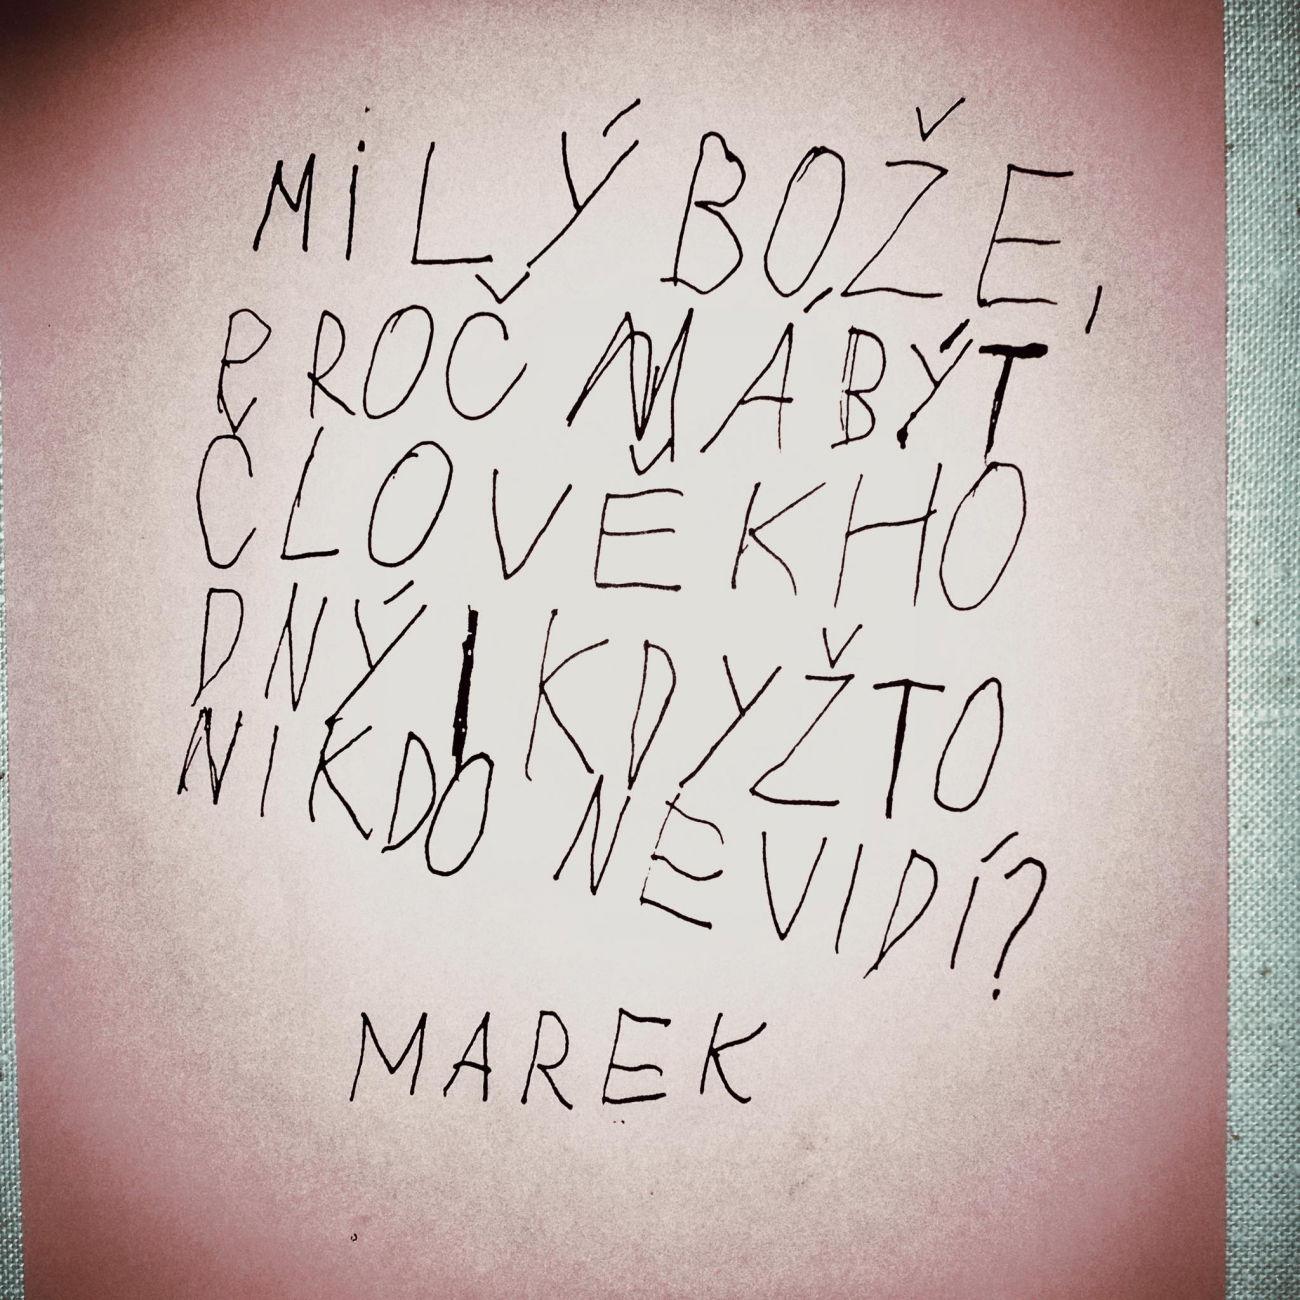 MILÝ BOŽE,
PROČ MÁ BÝT
ČLOVĚK HO
DNÝ I KDYŽ TO
NIKDO NEVIDÍ?
MAREK